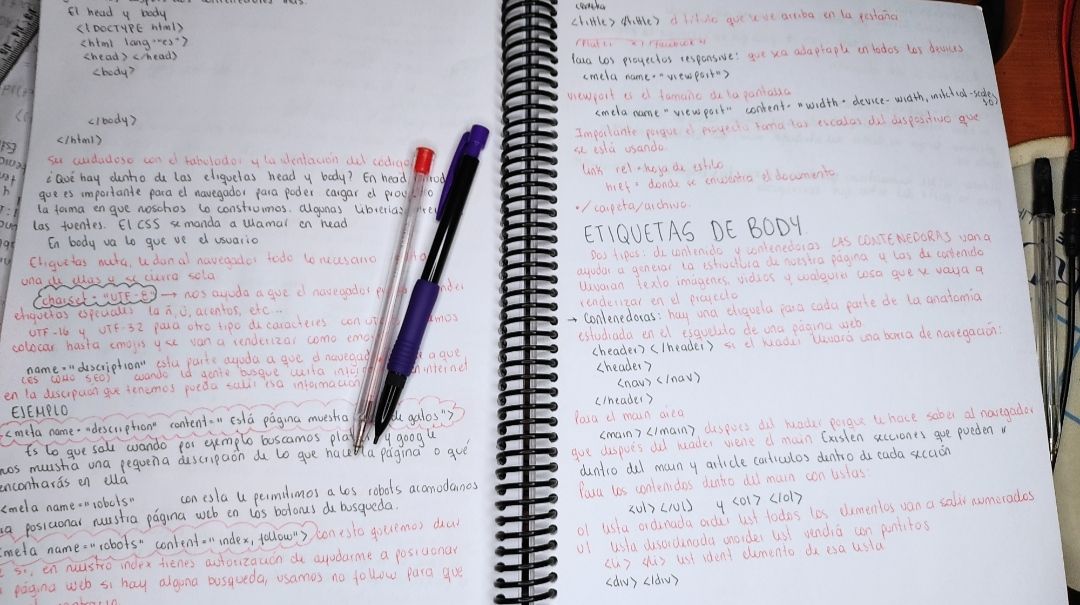 contenedores mas.
El head y body
<!DOCTYPE html>
<html lang="es">
<head> </head>
<body>
</body>
</html>
ser cuidadoso con el tabulador y la identación del código
¿Qué hay dentro de las etiquetas head y body? En head
que es importante para el navegador para poder cargar el
la forma en que nosotros lo construimos. algunas librerias
las fuentes. El CSS se manda a llamar en head
En body va lo que ve el usuario
Etiquetas meta, le dan al navegador todo lo necesario
una de ellas y se cierra sola.
charset="UTF-8" → nos ayuda a que el navegador
etiquetas especiales la ñ, ü, acentos, etc...
UTF-16 y UTF-32 para otro tipo de caracteres con
colocar hasta emojis y se van a renderizar como
name="description" esta parte ayuda a que el a que
(ES COMO SEO) cuando la gente busque cierta internet
en la descripción que tenemos pueda salir esa información
EJEMPLO
<meta name="description" content="Está página muestra de gatos">
Es lo que sale cuando por ejemplo buscamos y google
nos muestra una pequeña descripción de lo que hace la página o qué
encontrarás en ella
<meta name="robots" con esta le permitimos a los robots acomodarnos
posicionar nuestra página web en los botones de busqueda.
<meta name="robots" content="index, follow"> con esto queremos decir
si, en nuestro index tienes autorización de ayudarme a posicionar
página web si hay alguna busqueda, usamos no follow para que
<tittle> </tittle> el titulo que se ve arriba en la pestaña
Para los proyectos responsive: que sea adaptable en todos los devices
<meta name="viewport">
viewport es el tamaño de la pantalla
<meta name"viewport" content="width=device-width, initial-scale=
Importante porque el proyecto toma las escalas del dispositivo que
se está usando.
link rel=hoja de estilo
href= donde se encuentra el documento
./ carpeta/archivo.
ETIQUETAS DE BODY
Dos tipos: de contenido y contenedoras LAS CONTENEDORAS van a
ayudar a generar la estructura de nuestra página y las de contenido
llevaran texto imágenes, videos y cualquier cosa que se vaya a
renderizar en el proyecto
→ Contenedoras: hay una etiqueta para cada parte de la anatomía
estudiada en el esqueleto de una página web
<header> </header> si el header llevará una barra de navegación:
<header>
<nav> </nav>
</header>
Para el main area
<main> </main> despues del header porque le hace saber al navegador
que después del header viene el main Existen secciones que pueden ir
dentro del main y article (articulos dentro de cada sección
Para los contenidos dentro del main con listas:
<ul> </ul> y <ol> </ol>
ol lista ordenada order list todos los elementos van a salir numerados
ul lista desordenada unorder list vendrá con puntitos
<li> <li> list ident elemento de esa lista
<div> </div>